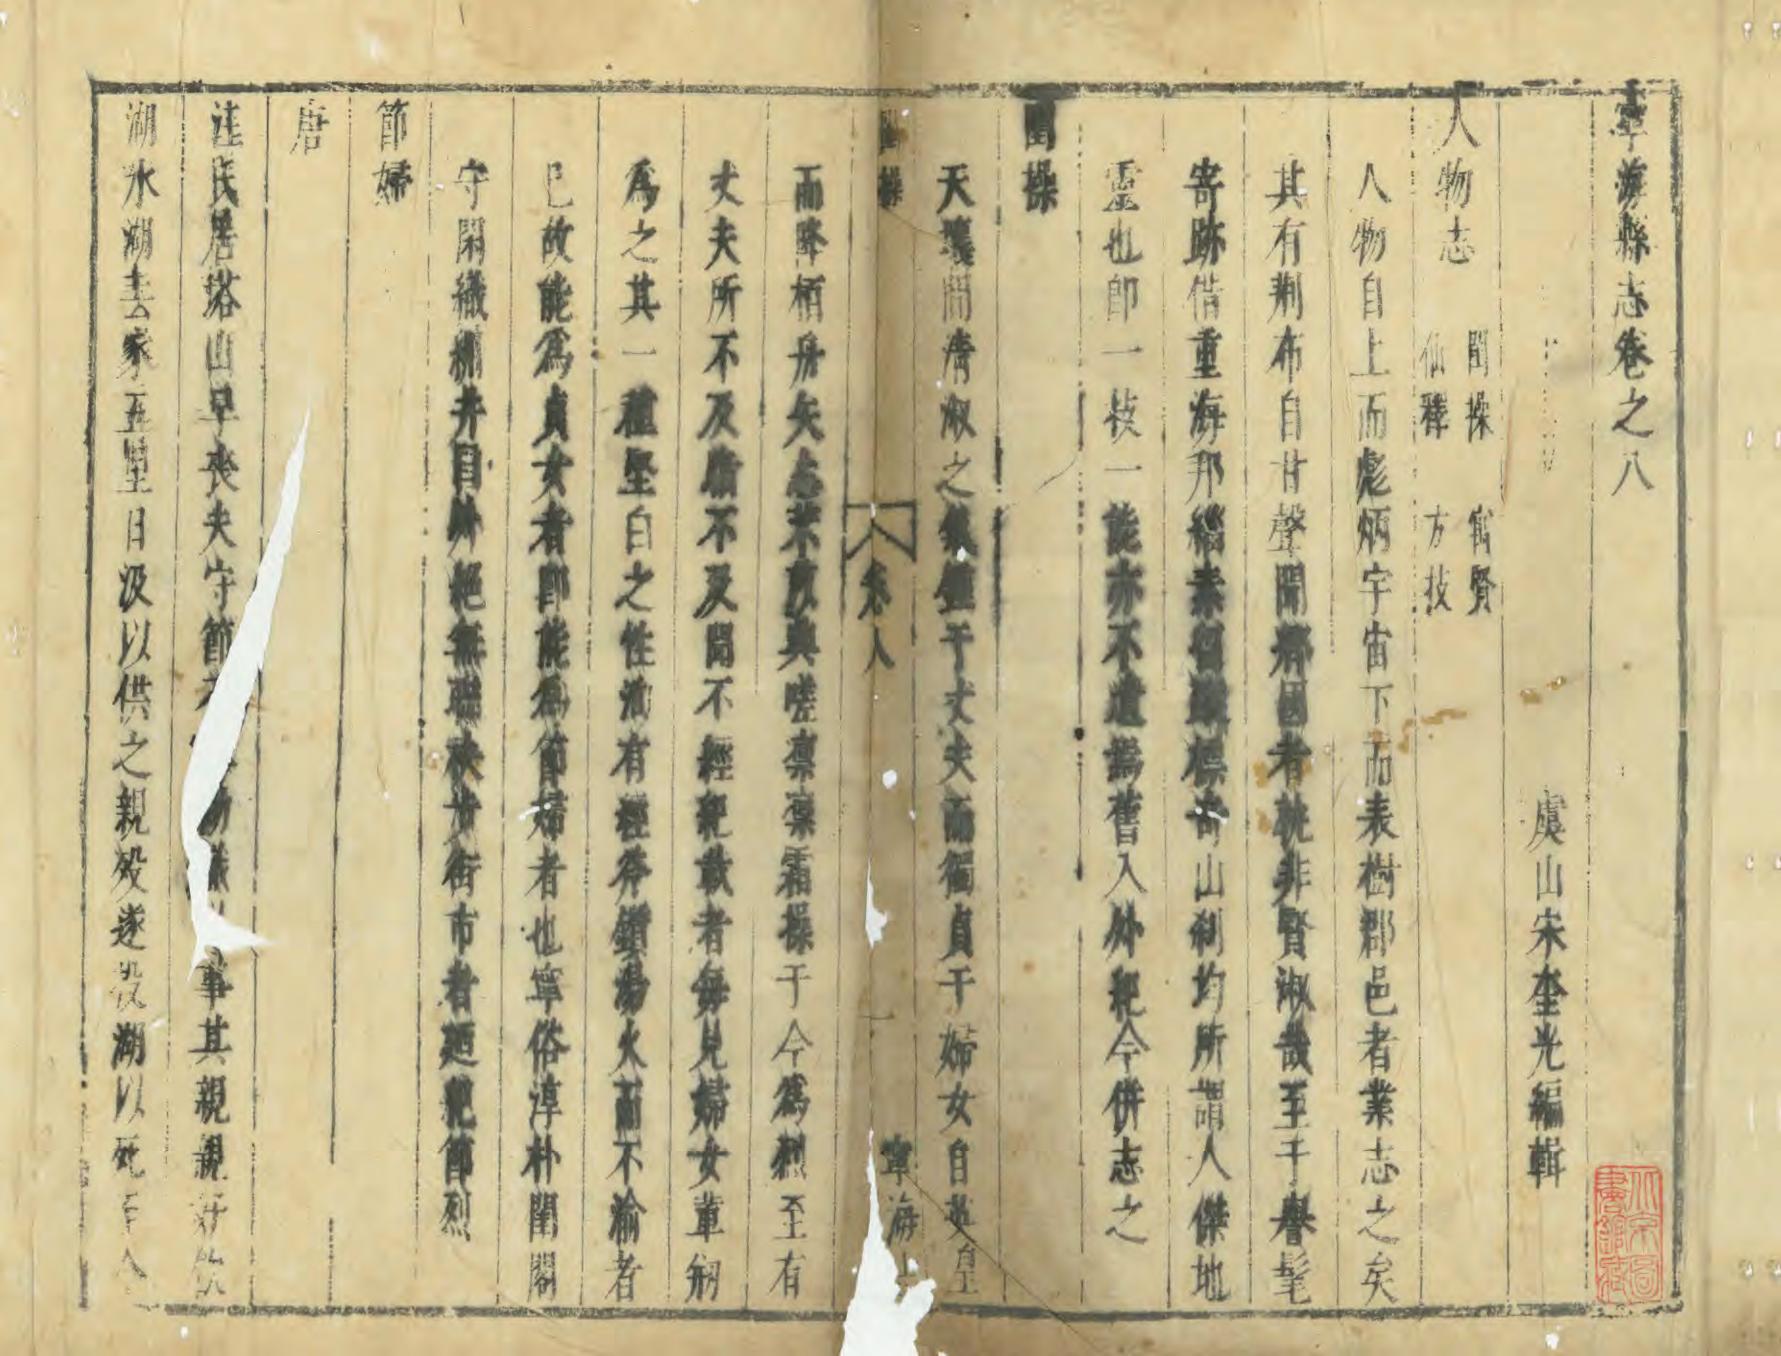 寧海縣志卷之八
虞山宋奎光編輯
人物志
閨操　寓賢
仙釋　方技
人物自上而彪炳宇宙下而表樹郡邑者業志之矣
其有荆布自甘聲聞鄰國者孰非賢淑哉至于譽髦
寄跡借重海邦緇素習靜標奇山刹均所謂人傑地
靈也即一枝一能亦不遺焉舊入外紀今併志之
閨操
天壤間清淑之氣鍾于丈夫而獨貞于婦女自英皇
卷八
寧海
而降栢舟矢志茶哀興嗟凜凜霜操于今爲烈至有
丈夫所不及磨不及聞不經紀載者每見婦女輩剏
爲之其一種堅白之性洵有經斧鑕湯火而不渝者
已故能爲貞女者即能爲節婦者也寧俗淳朴閨閣
守閑織絍井臼外絶無聯袂步街市者廼紀節烈
節婦
唐
汪氏居塔山早丧夫守節 事其親親好飲
湖水湖去家五里日汲以供之親殁遂投湖以死至今